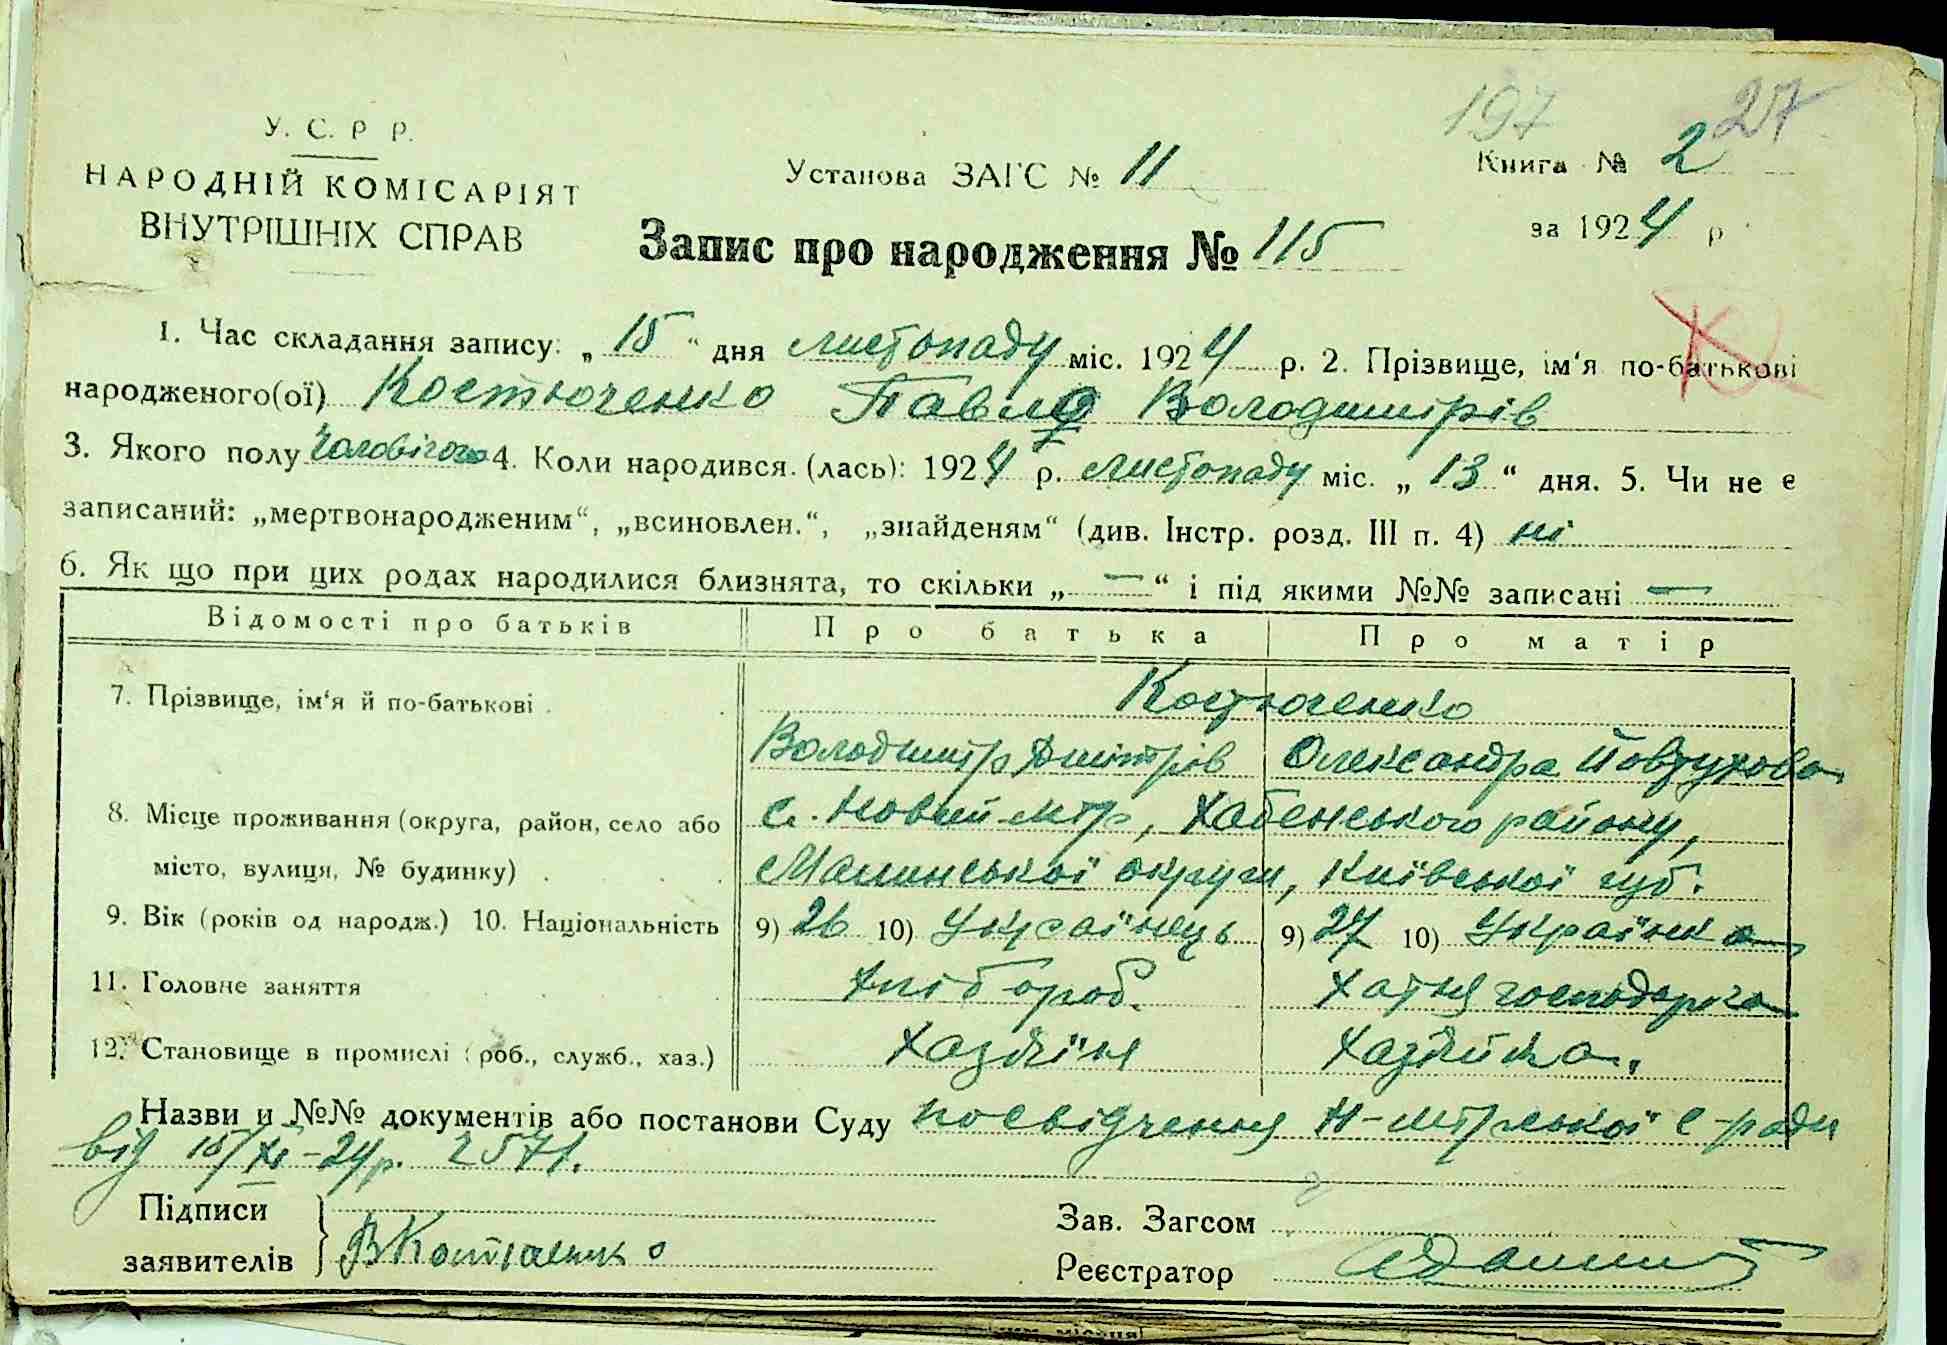 197
27
У. С. Р Р.
НАРОДНІЙ КОМІСАРІЯТ
ВНУТРІШНІХ СПРАВ
Установа ЗАГС № 11
Книга № 2
за 1924 р
Запис про народження № 115
1. Час складання запису: „ 15 “ дня листопаду міс. 1924 р. 2. Прізвище, ім‘я по-батькові
народженого(ої) Костюченко Павло Володимирів
3. Якого полу чоловічого 4. Коли народився. (лась): 1924 р. листопаду міс. „ 13 “ дня. 5. Чи не є
записаний: „мертвонародженим“, „всиновлен.“, „знайденям“ (див. Інстр. розд. III п. 4) ні
6. Як що при цих родах народилися близнята, то скільки „ — “ і під якими №№ записані —
Відомості про батьків Про батька Про матір
7. Прізвище, ім‘я й по-батькові Костюченко
Володимір Дмітрів Олександра Йовтухова
8. Місце проживання (округа, район, село або с. Новий-мір, Хабенського району,
місто, вулиця, № будинку) Малинської округи, Київської губ.
9. Вік (років од народж.) 10. Національність 9) 26 10) Українець 9) 27 10) Українка
11. Головне заняття хлібороб. хатня господарка
12. Становище в промислі (роб., служб., хаз.) хазяїн хазяйка.
Назви и №№ документів або постанови Суду посвідчення Н-мірської с-ради
від 15/XI-24р. 2571.
Підписи
заявителів } ВКостюченко
Зав. Загсом
Реєстратор